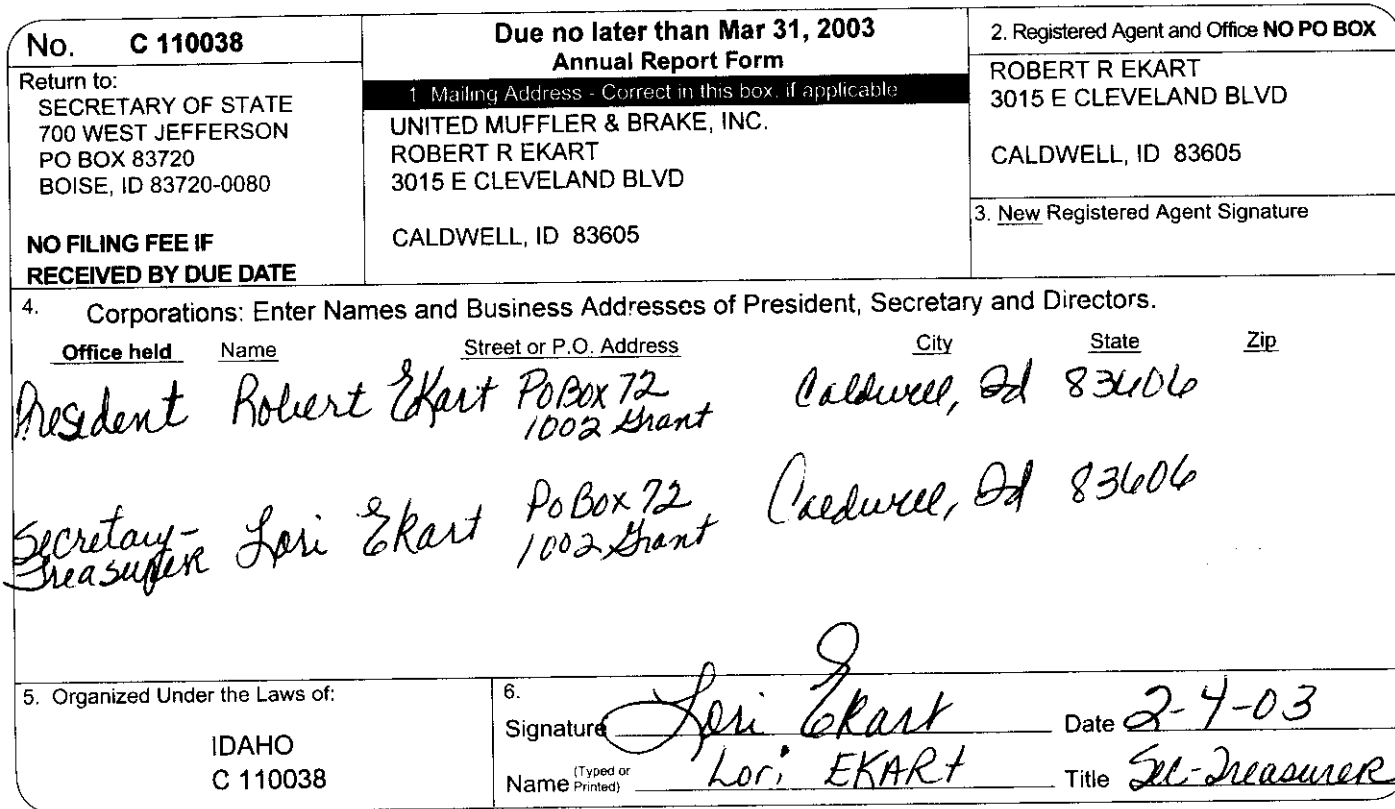 No. C 110038
Return to:
SECRETARY OF STATE
700 WEST JEFFERSON
PO BOX 83720
BOISE, ID 83720-0080
NO FILING FEE IF
RECEIVED BY DUE DATE
Due no later than Mar 31, 2003
Annual Report Form
1 Mailing Address - Correct in this box, if applicable
UNITED MUFFLER & BRAKE, INC.
ROBERT R EKART
3015 E CLEVELAND BLVD
CALDWELL, ID 83605
2. Registered Agent and Office NO PO BOX
ROBERT R EKART
3015 E CLEVELAND BLVD
CALDWELL, ID 83605
3. New Registered Agent Signature
4. Corporations: Enter Names and Business Addresses of President, Secretary and Directors.
Office held Name Street or P.O. Address City State Zip
President Robert Ekart PO Box 72 Caldwell, Id 83606
1002 Grant
Secretary- Lori Ekart Po Box 72 Caldwell, Id 83606
Treasurer 1002 Grant
5. Organized Under the Laws of:
IDAHO
C 110038
6.
Signature Lori Ekart Date 2-4-03
Name (Typed or Printed) Lori EKARt Title Sec-Treasurer